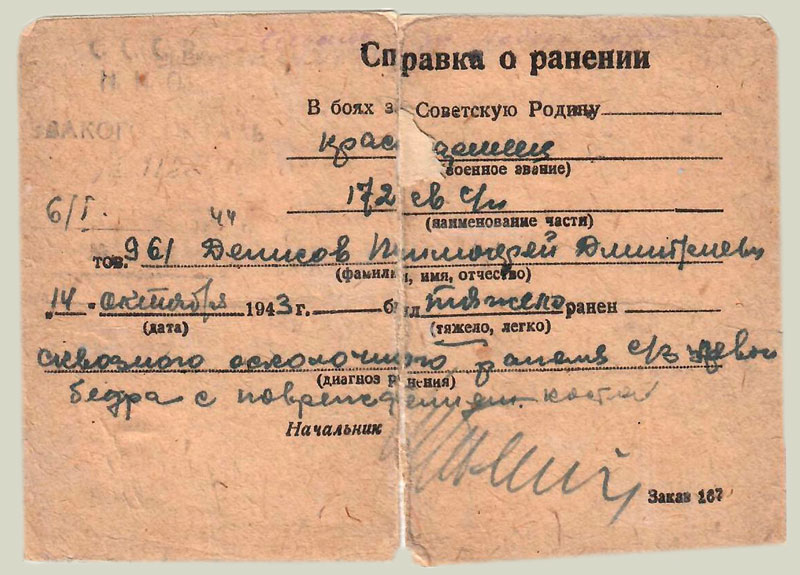 С С С Р
Н. К. О.
Справка о ранении
В боях за Советскую Родину
крас
(военное звание)
172 св с/п
6/I. 44
(наименование части)
тов. 961 Денисов Тимофей Дмитриеви
(фамилия, имя, отчество)
14 - октября 1943 г. был тяжело ранен
(дата) (тяжело, легко)
сквозного осколочного ранения с/з левого
(диагноз ранения)
бедра с повреждением кости
Начальник
Заказ 167